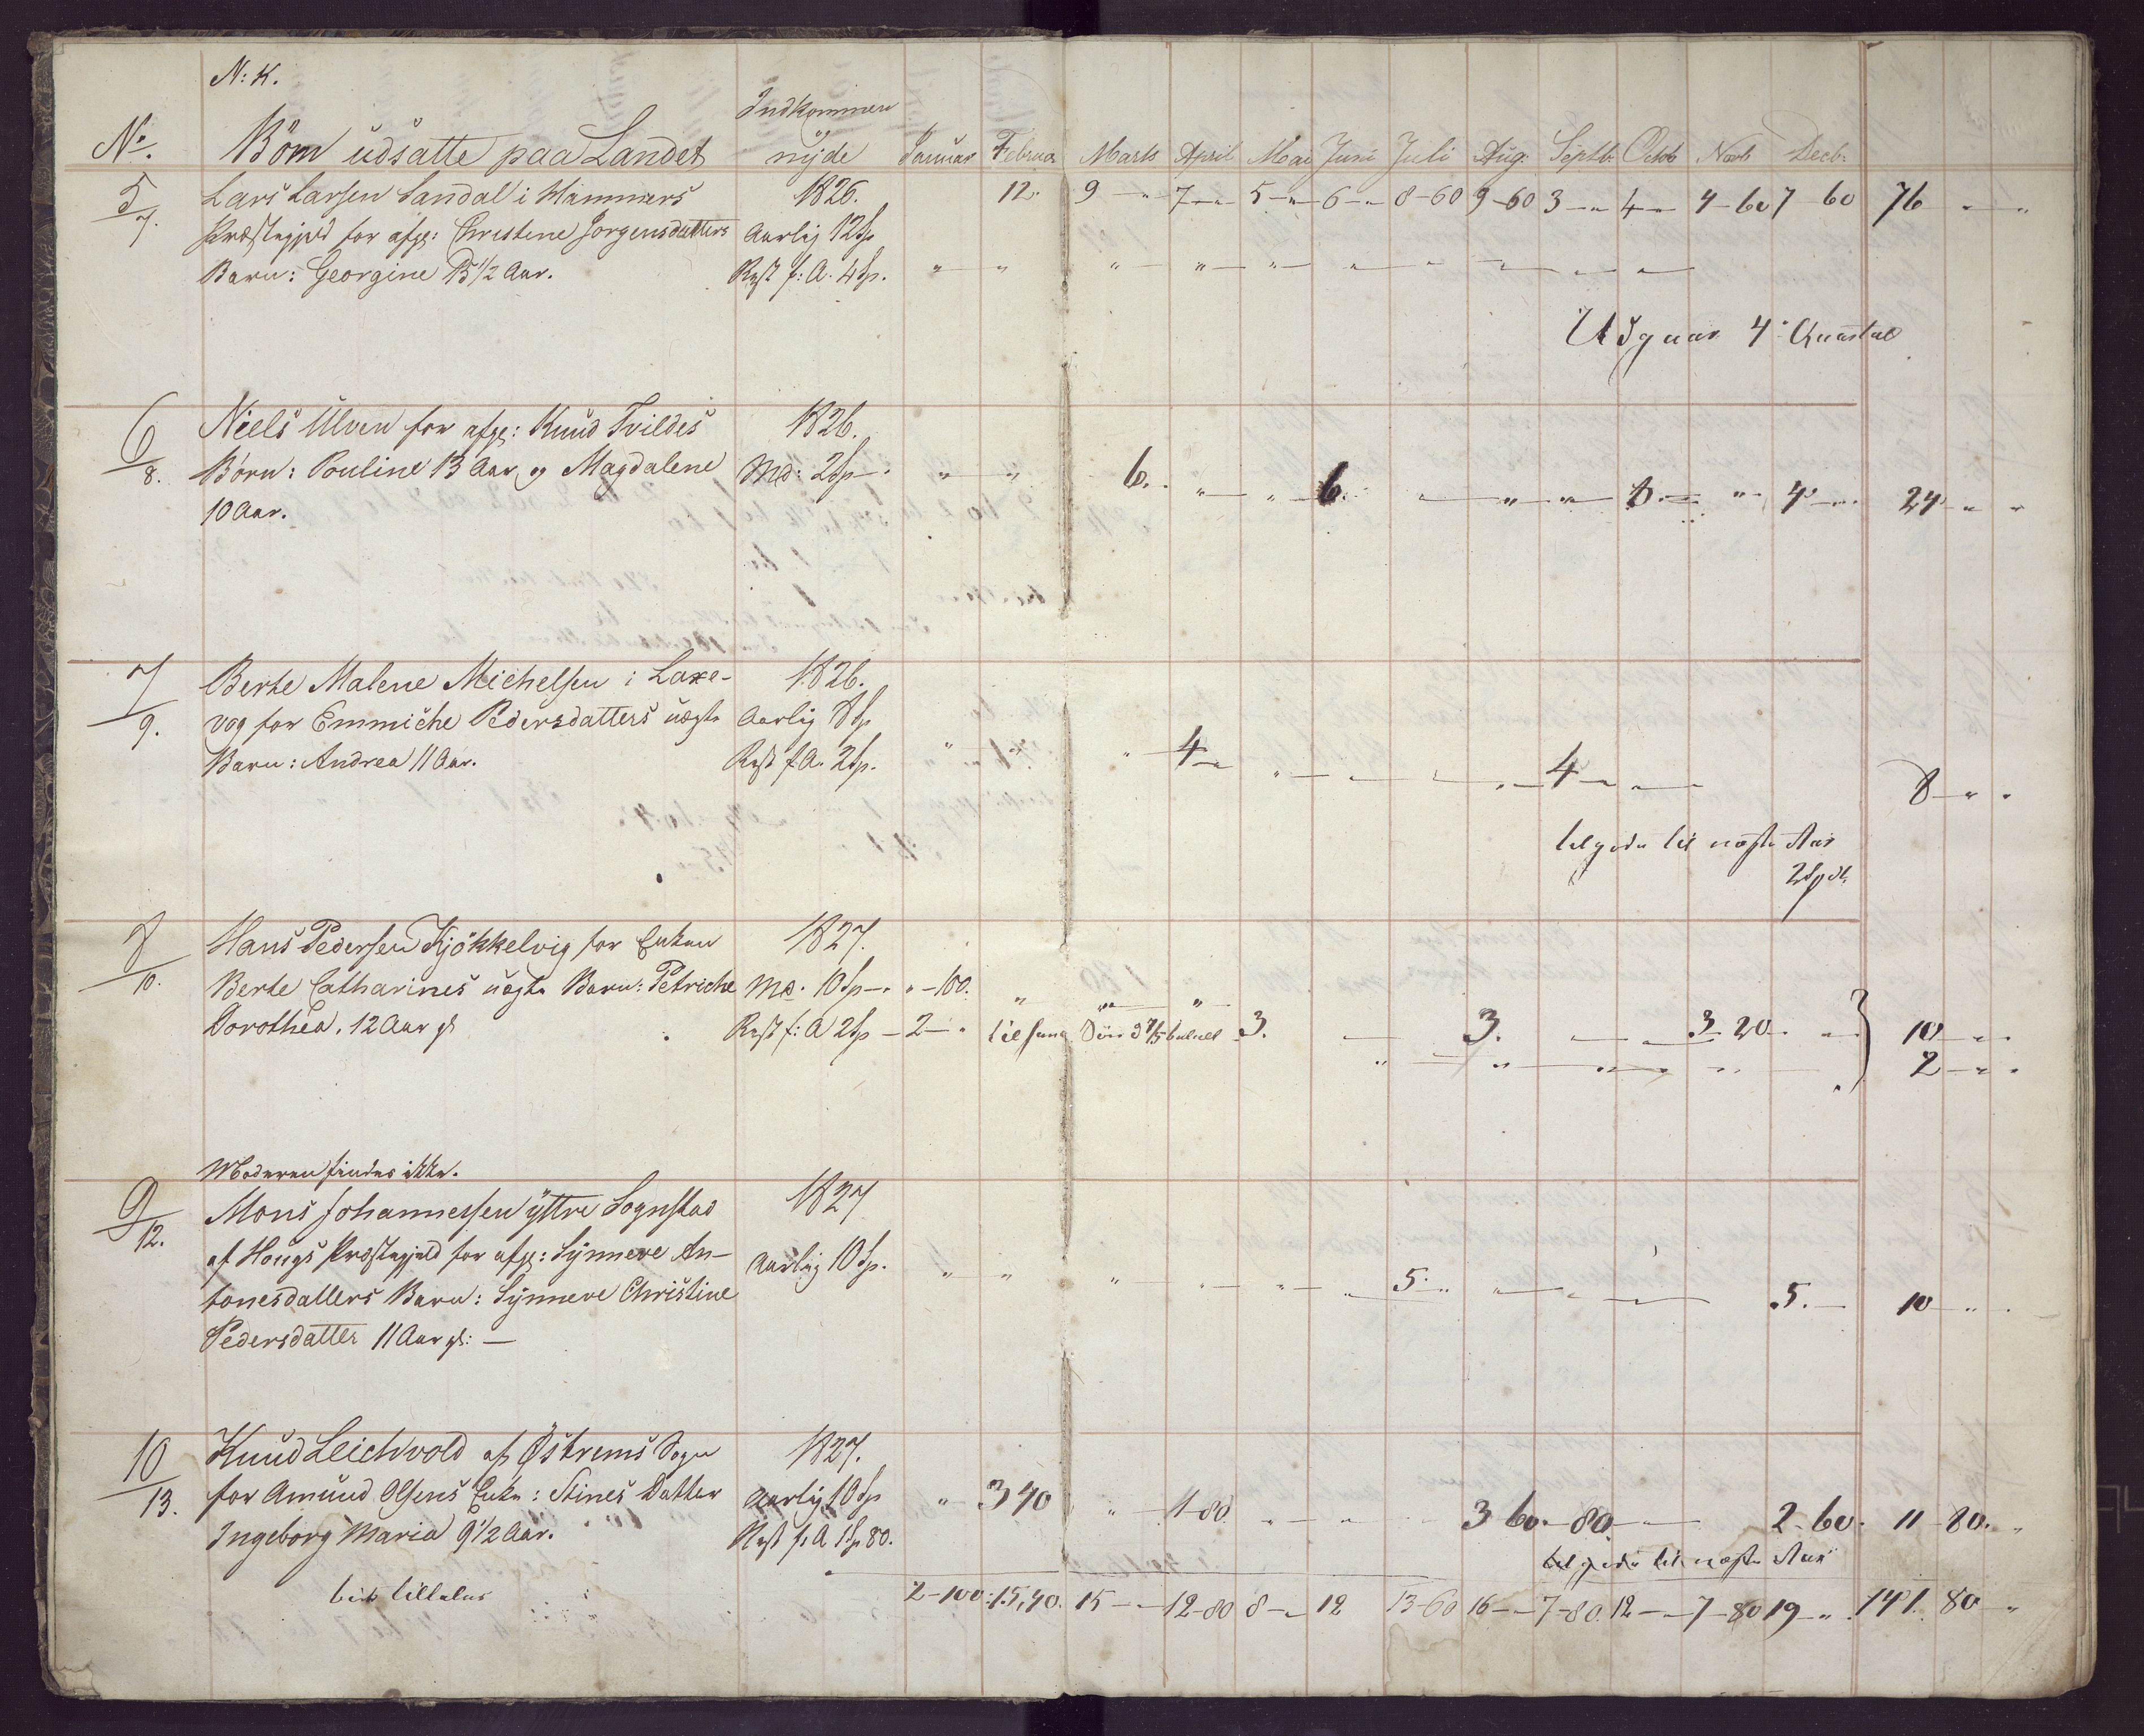 N: K.
No. Börn udsatte paa Landet Indkommen nyde Januar Februar Marts April Mai Juni Juli Aug: Septb: Octob Novb Decb:
5/7. Lars Larsen Sandal i Hammers 1826. 12. 9 - " 7 - " 5 - " 6 - " 8-60 9-60 3 - " 4 - " 4-60 7 60 76 - "
Præstegjeld for afg: Christene Jorgensdatters Aarlig 12 Sp
Barn: Georgine 15 1/2 Aar. Rest f: A. 4 Sp. " "
Udgaar 4. Quartal
6/8. Niels Ulven for afg: Knud Tvildes 1826.
Börn: Pouline 13 Aar og Magdalene Md: 2 Sp - " " " 6. " " 6. " " 6. " 4 - " 24 " "
10 Aar.
7/9. Berte Malene Michelsen i Laxe- 1826.
vog for Emmiche Pedersdatters uægte Aarlig 8 Sp
Barn: Andrea 11 Aar. Rest f A. 2 Sp. " " " 4 - " " 4 - " 8 - " "
tilgode til næste Aar
2 Spd.
8/10. Hans Pedersen Kjökkelvig for Enken 1827.
Berte Catharines uægte Barn: Petriche Md. 10 Sp - " " - 100. " " "
Dorothea. 12 Aar gl Rest f: A 2 Sp - 2 - " 3. 3. 3. 20 10 - "
2 - "
Moderen findes ikke.
9/12. Mons Johannessen ÿttre Sognstad 1827
af Hougs Præstegjeld for afg: Synneve An-
tonesdatters Barn: Synneve Christine Aarlig 10 Sp. " " " " " " 5. " " 5. - 10 " "
Pedersdatter 11 Aar gl: -
10/13. Knud Leichvold af Østrems Sogn 1827.
for Amund Olsens Enke: Stines Datter Aarlig 10 Sp " 3 40 " 4-80 3 60 - 80 2-60. 11-80. "
Ingeborg Maria 9 1/2 Aar. Rest f: A 1 Sp 80.
tilgode til næste Aar
2-100: 15,40. 15 - " 12-80 8 - " 12 13-60 16 - " 7-80. 12 - " 7-80 19 " 141. 80 "